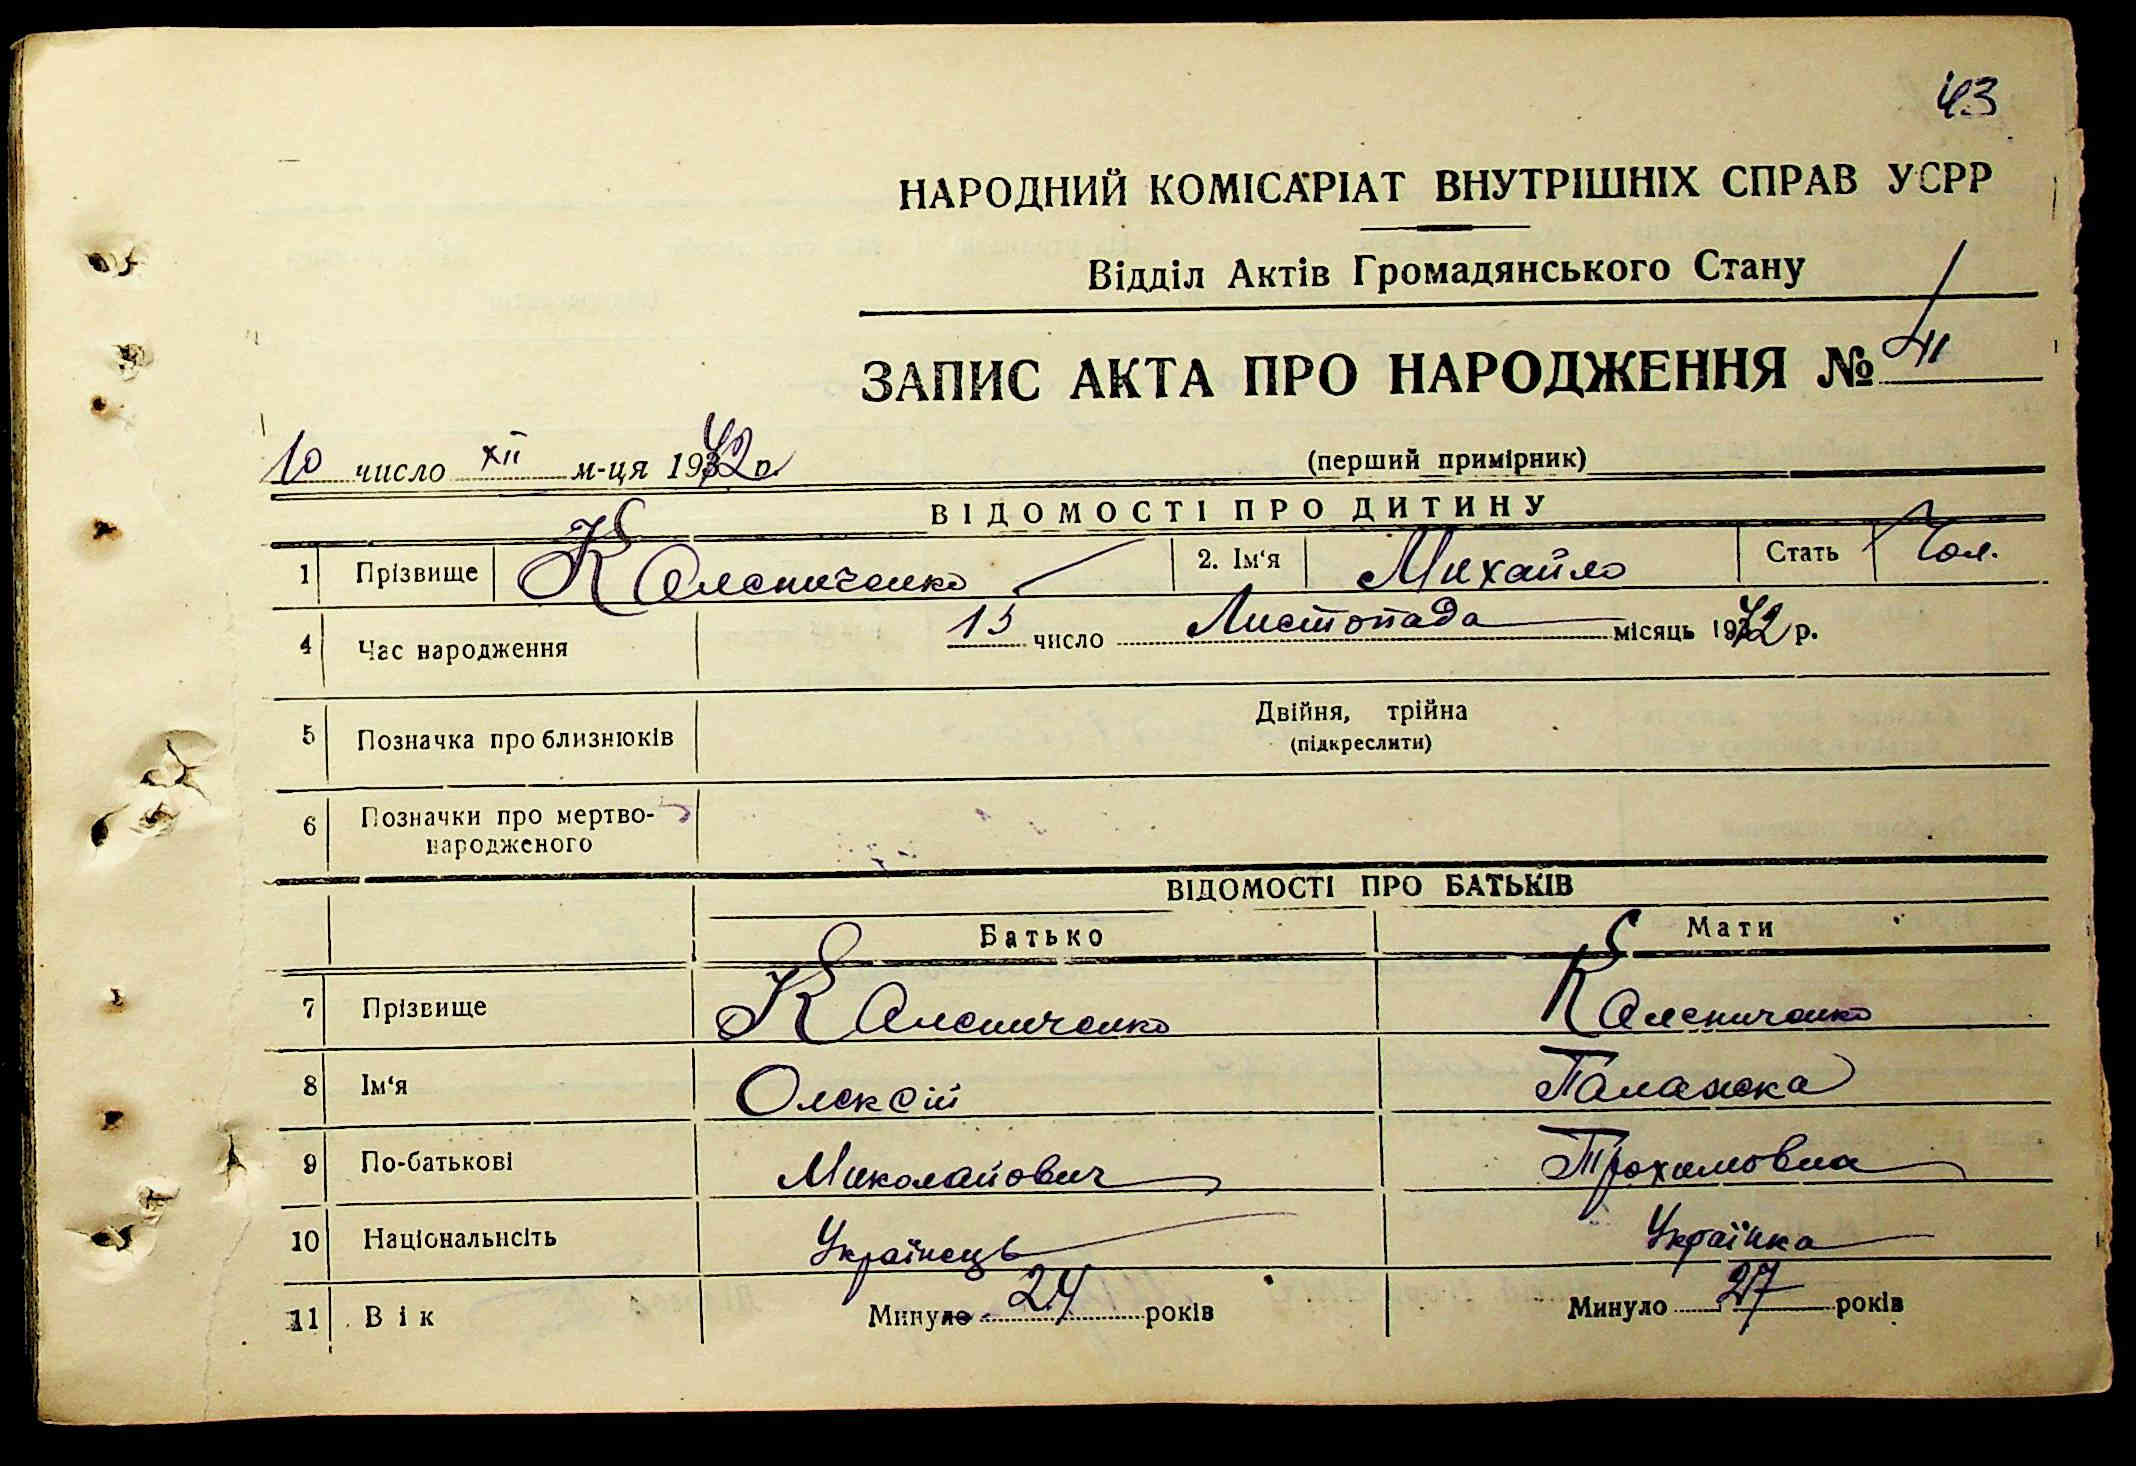 43
НАРОДНИЙ КОМІСАРІАТ ВНУТРІШНІХ СПРАВ УСРР
Відділ Актів Громадянського Стану
ЗАПИС АКТА ПРО НАРОДЖЕННЯ №
10 число XII м-ця 1942 р.
(перший примірник)
ВІДОМОСТІ ПРО ДИТИНУ
1 Прізвище Колесниченко 2. Ім'я Михайло Стать Чол.
4 Час народження 15 число Листопада місяць 1942 р.
5 Позначка про близнюків Двійня, трійна
(підкреслити)
6 Позначки про мертво-
народженого
ВІДОМОСТІ ПРО БАТЬКІВ
Батько Мати
7 Прізвище Колесниченко Колесниченко
8 Ім'я Олексій Палажка
9 По-батькові Миколайович Трохимовна
10 Національнсіть Українець Українка
11 Вік Минуло 24 років Минуло 27 років